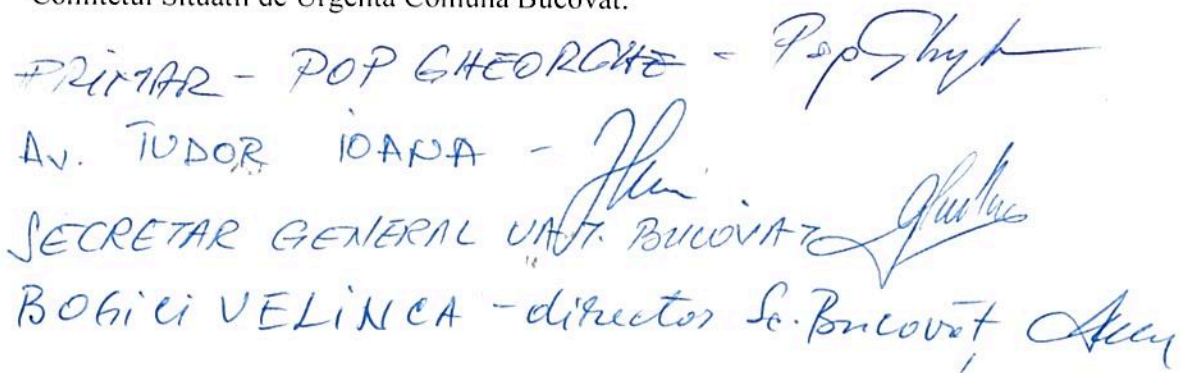 Comitetul Situatii de Urgenta Comuna Bucovat:
PRIMAR - POP GHEORGHE - Pop Ghe
Av. TUDOR IOANA -
SECRETAR GENERAL UAT. BUCOVAT
BOGICI VELINCA - director Sc. Bucovăț